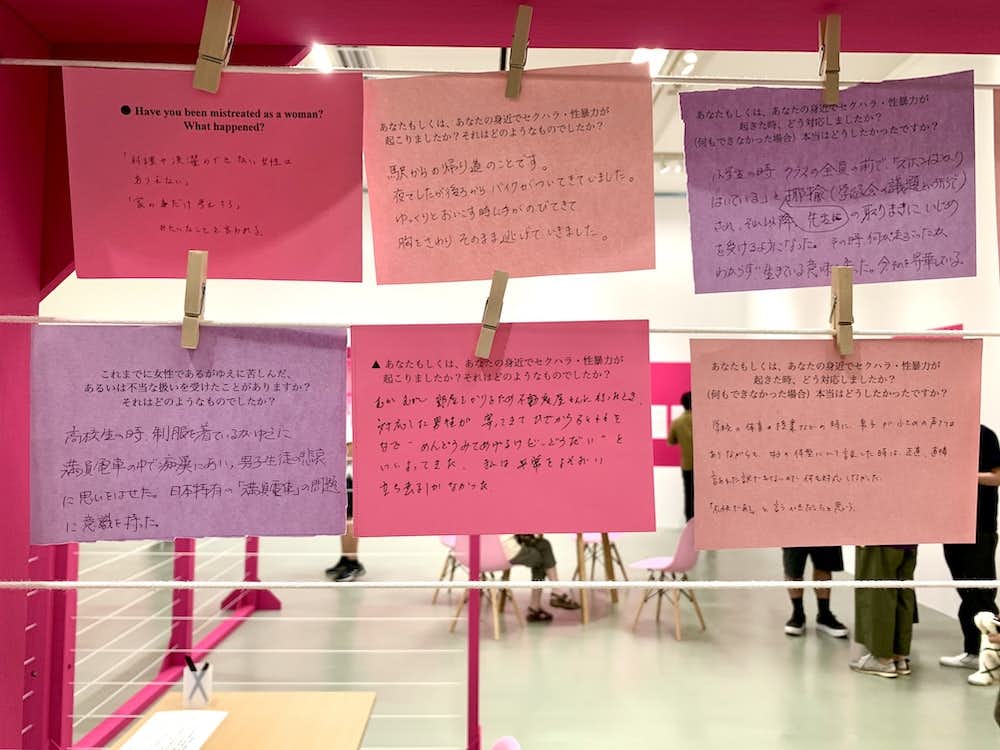 ● Have you been mistreated as a woman?
What happened?
「料理や洗濯のできない女性は
ありえない」
「家の事だけ考えろ」
みたいなことを言われる。
あなたもしくは、あなたの身近でセクハラ・性暴力が
起こりましたか?それはどのようなものでしたか?
駅からの帰り道のことです。
夜でしたが後ろからバイクがついてきていました。
ゆっくりとおいこす時に手がのびてきて
胸をさわり そのまま逃げていきました。
あなたもしくは、あなたの身近でセクハラ・性暴力が
起きた時、どう対応しましたか?
(何もできなかった場合)本当はどうしたかったですか?
小学生の時 クラスの全員の前で、
はいている」と揶揄(学級会の議題
され、それ以降 先生 の取りまきにいじめ
を受けるようになった。その時、何が起こったか
わからず 生きている意味 った。今それを昇華している。
これまでに女性であるがゆえに苦しんだ、
あるいは不当な扱いを受けたことがありますか?
それはどのようなものでしたか?
高校生の時、制服を着ているがゆえに
満員電車の中で痴漢にあい、男子生徒の
に思いをはせた。日本特有の「満員電車」の問題
に意識を持った。
▲ あなたもしくは、あなたの身近でセクハラ・性暴力が
起こりましたか?それはどのようなものでしたか?
むかしむかし 部屋をかりるため不動産屋さんに行ったとき、
対応した男性が 寄ってきて ひざから を
なで "めんどうみてあげるけど…どうだい" と
いいよってきた。 私は平常をよそおい
立ち去るしかなかった
あなたもしくは、あなたの身近でセクハラ・性暴力が
起きた時、どう対応しましたか?
(何もできなかった場合)本当はどうしたかったですか?
学校の体育の授業などの時に、男子が小さめの声では
ありながらも、 体型について話していた時は、正直、直接
言われた訳ではないので何も対応しなかった。
と言いたかったと思う。